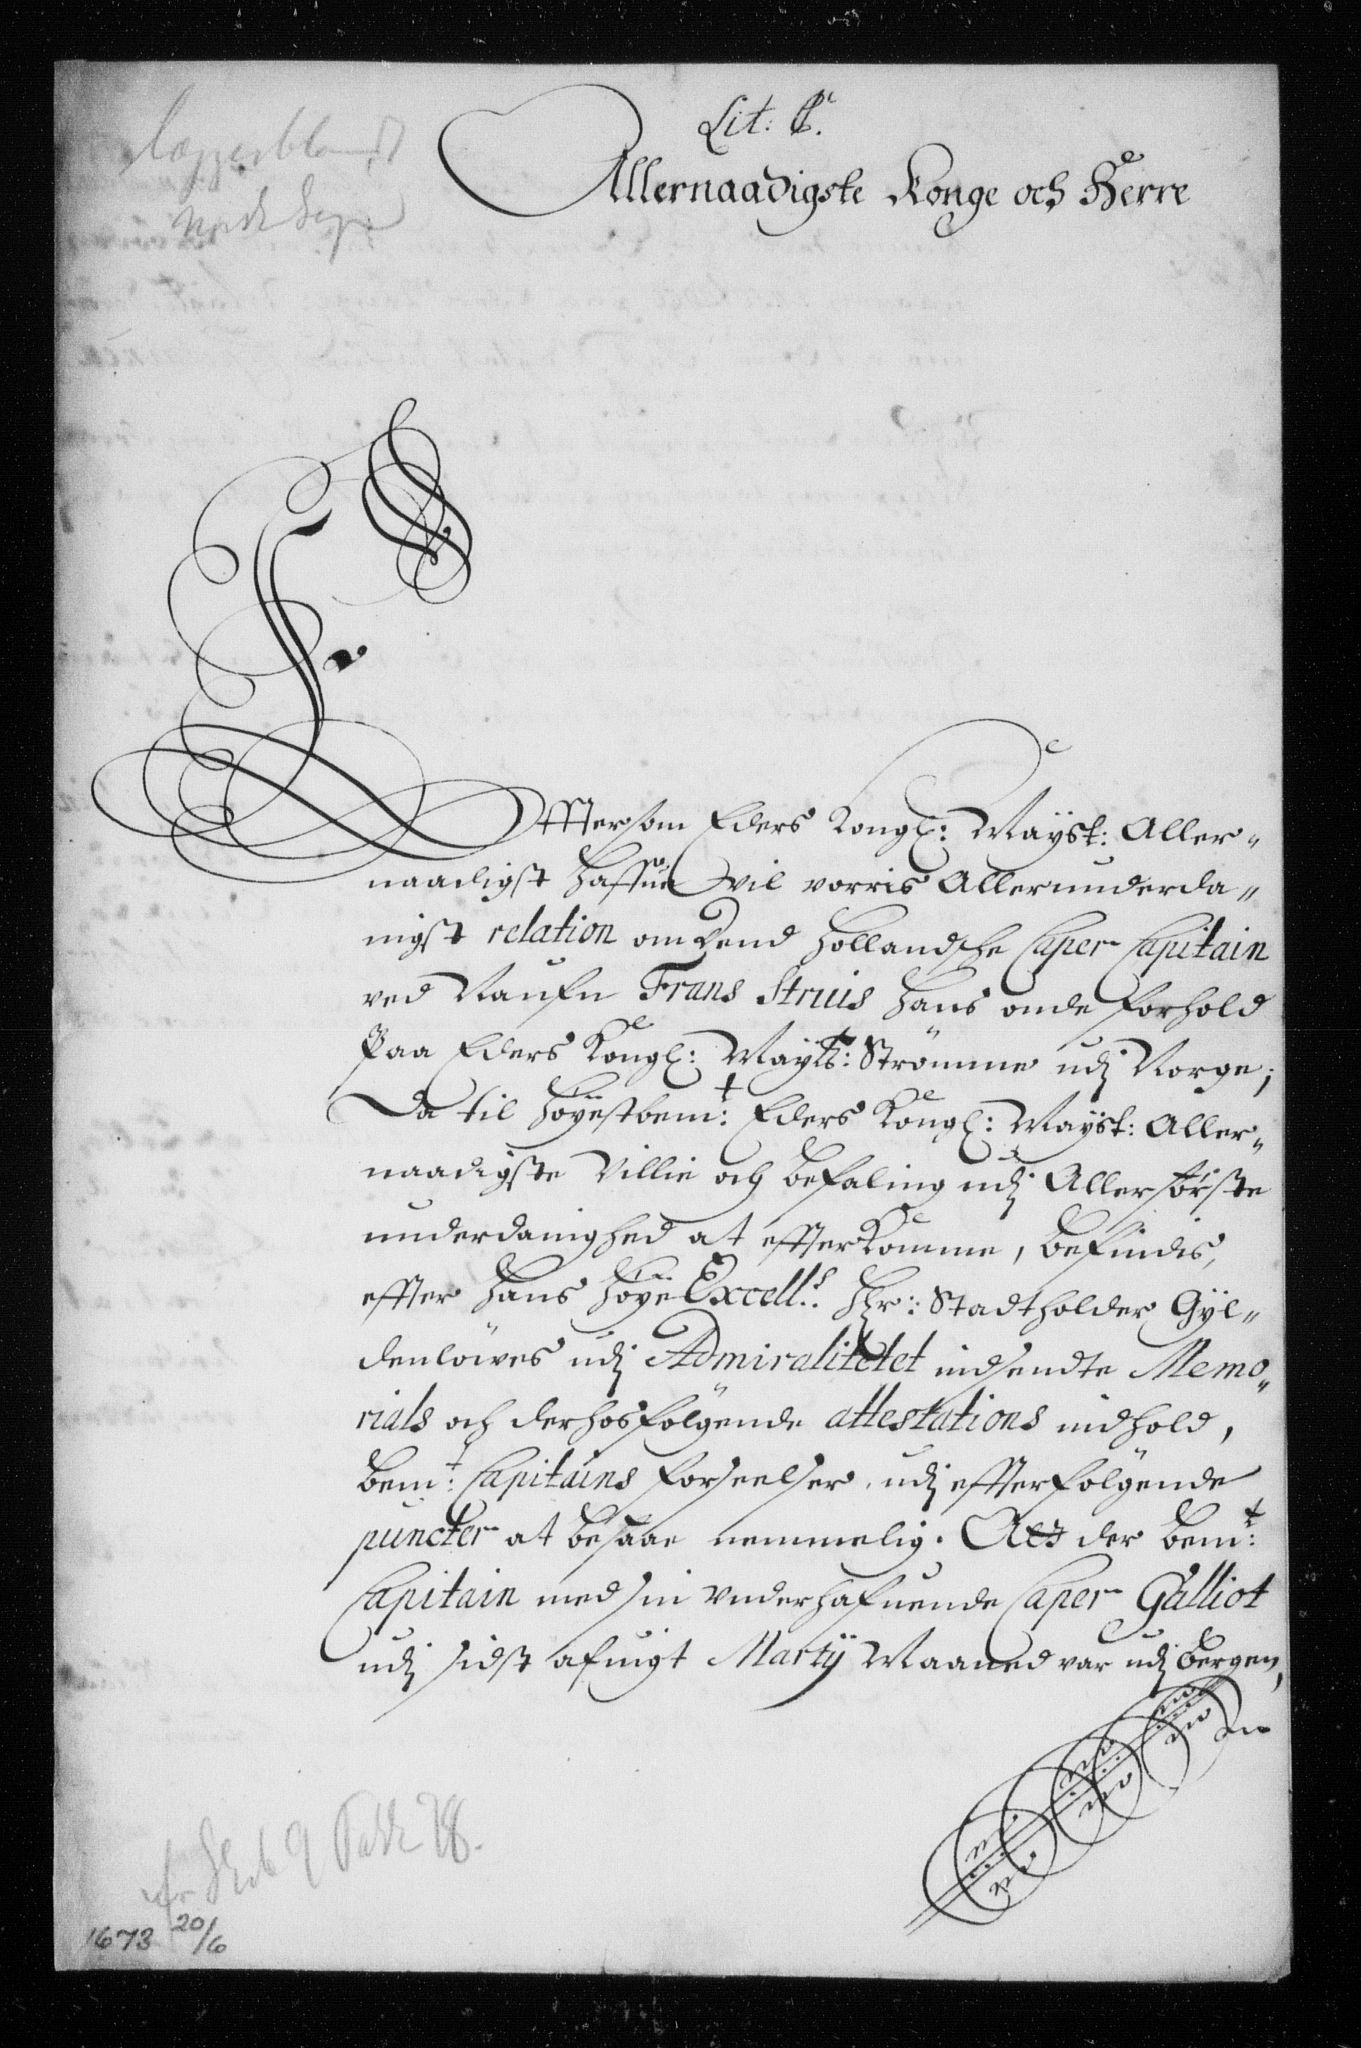 Lit: C.
Allernaadigste Konge och Herre
Efftersom Eders Kongl: Mayst: Aller-
naadigst haffuer vil vorris Allerunderda-
nigst relation om dend hollandsche Caper Capitain
ved Naufn Frans Struis hans onde forhold
Paa Eders Kongl: Mayts: Strömme udj Norge;
Da til höyestbemt: Eders Kongl: Mayst: Aller-
naadigste Villie och befaling udj Allerförste
underdanighed at efterkomme, befindis,
effter hans höye Excells: Hr: Stadtholder Gÿl-
denlöwes udj Admiralitetet indsendte Memo-
rials och derhosfölgende attestations indhold,
bemt: Capitains forseelser udj effterfölgende
puncter at bestaae nemmelig. At der bemt:
Capitain med sin underhafuende Caper Galliot
udj sidst afvigt Martij Maaned var udj Bergen,
1673 20/6